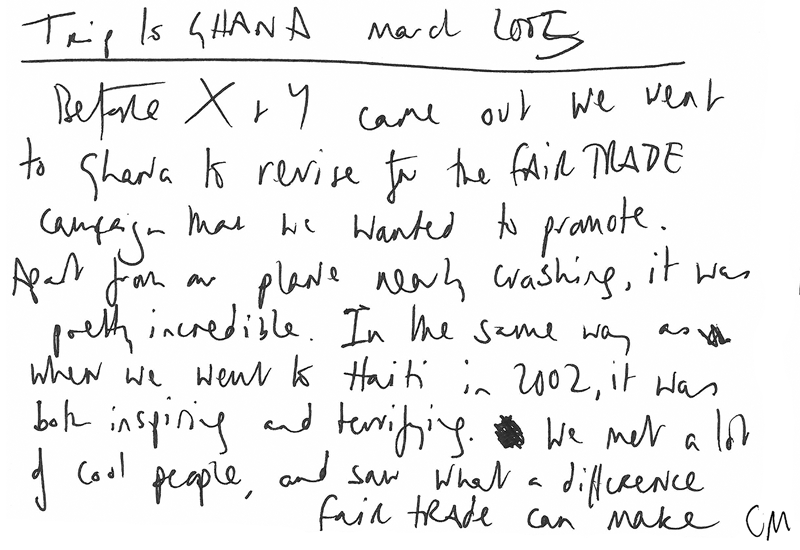 Trip to GHANA March 2005
Before X + Y came out we went
to Ghana to revise for the FAIR TRADE
campaign that we wanted to promote.
Apart from our plane nearly crashing, it was
pretty incredible. In the same way as
when we went to Haiti in 2002, it was
both inspiring and terrifying. We met a lot
of cool people, and saw what a difference
fair trade can make CM